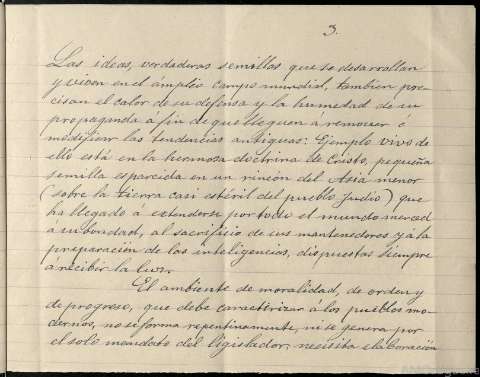 3.
Las ideas, verdaderas semillas que se desarrollan
y viven en el ámplio campo mundial, tambien pre-
cisan el calor de su defensa y la humedad de su
propaganda á fin de que lleguen á remover é
modificar las tendencias antiguas: Ejemplo vivo de
ello está en la hermosa doctrina de Cristo, pequeña
semilla esparcida en un rincón del Asia menor
(sobre la tierra casi estéril del pueblo judio) que
ha llegado á estenderse por todo el mundo merced
a su bondad, al sacrificio de sus mantenedores y á la
preparación de las inteligencias, dispuestas siempre
á recibir la luz.
El ambiente de moralidad, de orden y
de progreso, que debe caracterizar á los pueblos mo-
dernos, no se forma repentinamente, ni se genera por
el solo mandato del ligislador; necesita elaboración